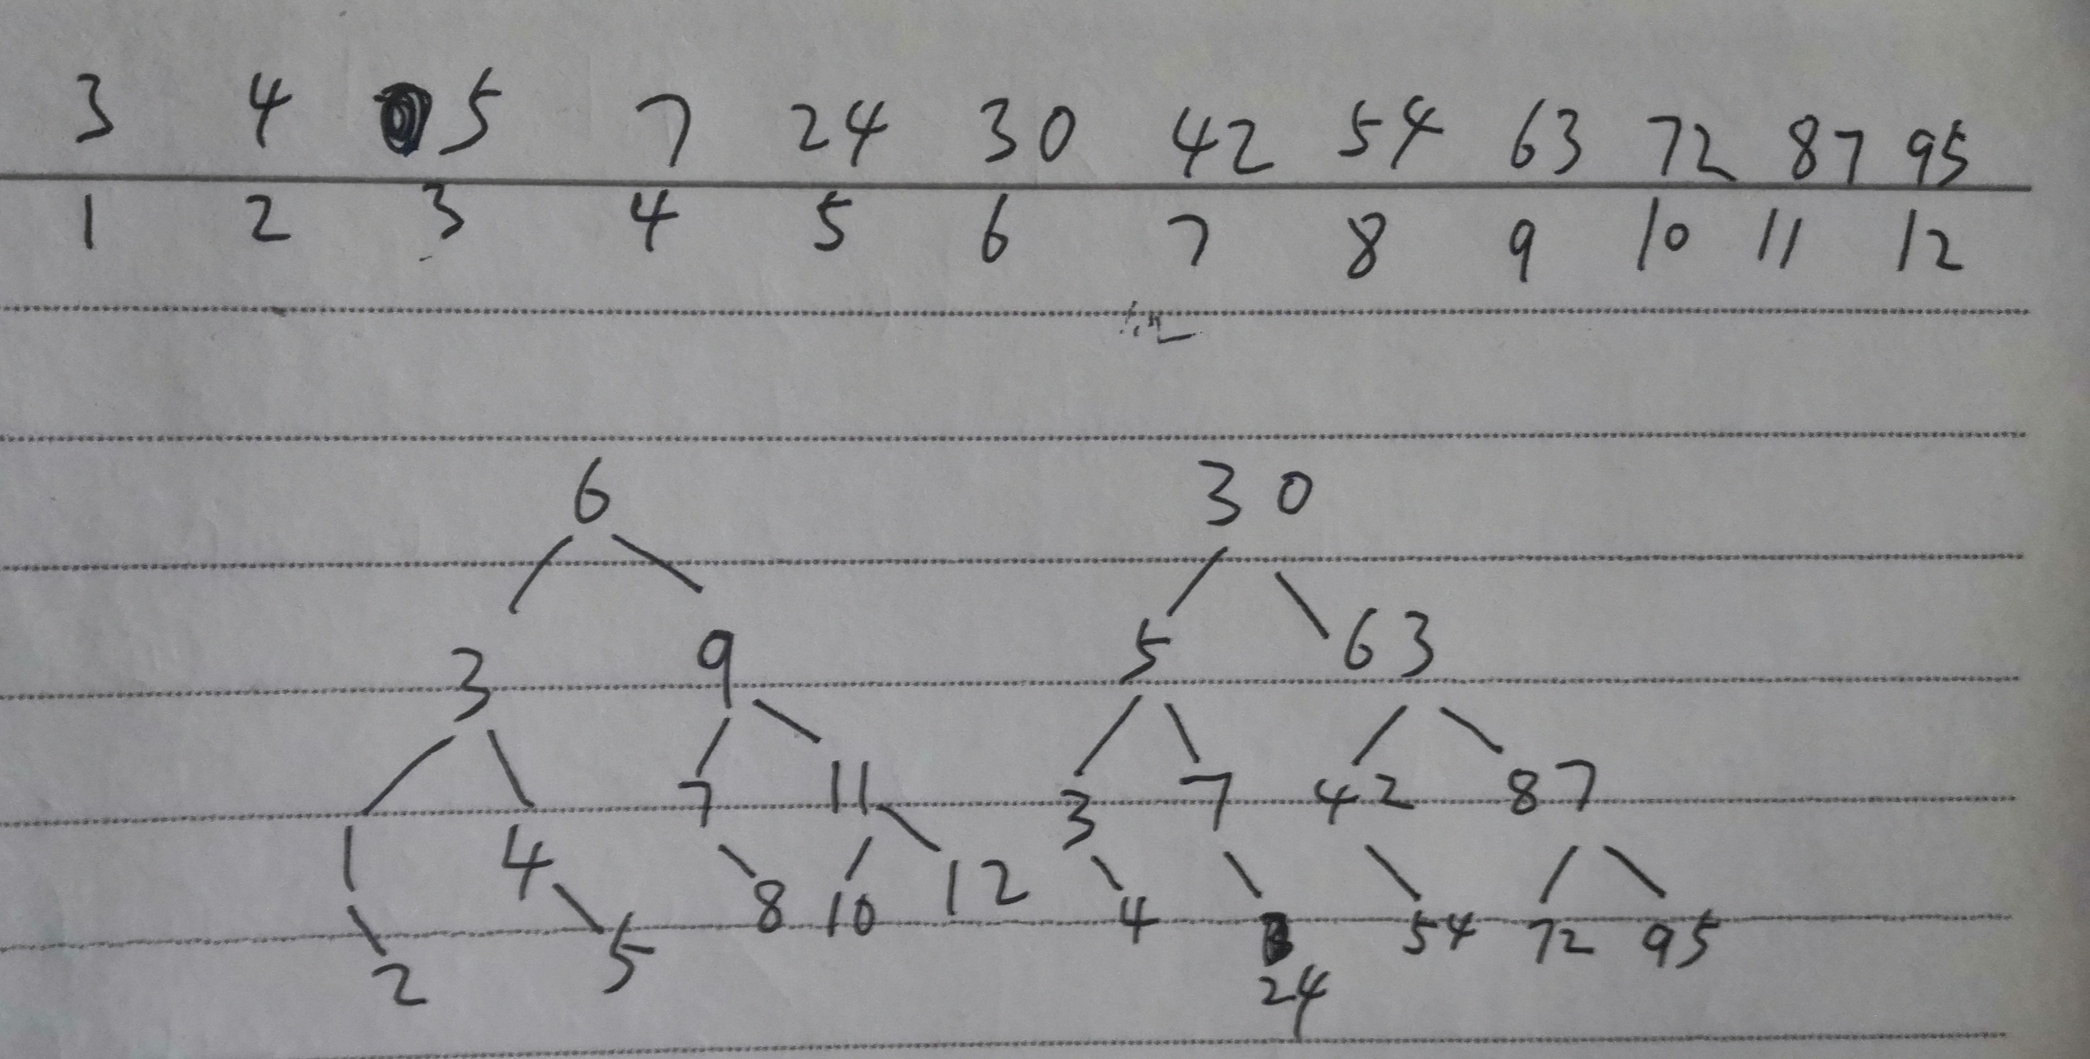 3 4 5 7 24 30 42 54 63 72 87 95
1 2 3 4 5 6 7 8 9 10 11 12
6 30
3 9 5 63
1 4 7 11 3 7 42 87
2 5 8 10 12 4 24 54 72 95